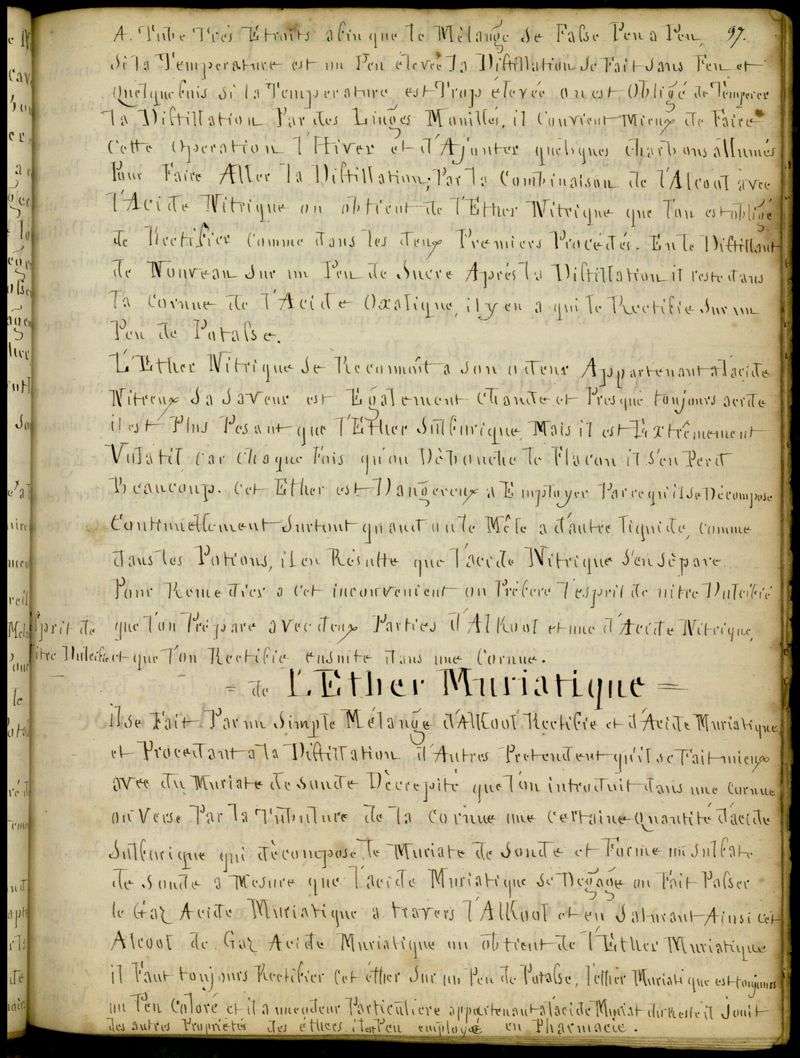 97.
A. Tube Très Etroits afin que le Mélange Se Fasse Peu a Peu,
Si la Temperature est un Peu elevée la Distillation Se Fait dans Peu et
Quelquefois Si la Temperature est Trop élevée on est Obligé de Temperer
la Distillation Par des Linges Mouillés, il Convient Mieux de Faire
Cette Operation l'Hiver et d'Ajouter quelques charbons allumés
Pour Faire Aller la Distillation; Par la Combinaison de l'Alcool avec
l'Acide Nitrique on obtient de l'Ether Nitrique que l'on est obligé
de Rectifier Comme dans les deux Premiers Procédés. En le Distillant
de Nouveau Sur un Peu de Sucre Après la Distillation il reste dans
la Cornue de l'Acide Oxalique, il y en a qui le Rectifie Sur un
Peu de Potasse.
L'Ether Nitrique Se Reconnoit a Son odeur Appartenant a l'acide
Nitreux Sa Saveur est Egalement Chaude et Presque toujours acide
il est Plus Pesant que l'Ether Sulfurique, Mais il est Extrêmement
Volatil Car Chaque Fois qu'on Débouche le Flacon il S'en Perd
Beaucoup. Cet Ether est Dangereux a Employer Parcequ'il Se Décompose
Continuellement Surtout quand on le Mêle a d'autre liquide, Comme
dans les Potions, il en Résulte que l'acide Nitrique S'en Sépare.
Pour Remedier a Cet inconvenient on Préfere l'esprit de nitre Dulcifié
que l'on Prépare avec deux Parties d'Alkool et une d'Acide Nitrique,
et que l'on Rectifie ensuite dans une Cornue.
= de l'Ether Muriatique =
il Se Fait Par un Simple Mélange d'Alkool Rectifié et d'Acide Muriatique
et Procedant a la Distillation d'Autres Pretendent qu'il se Fait mieux
avec du Muriate de Soude Décrepité que l'on introduit dans une Cornue
on Verse Par la Tubulure de la Cornue une Certaine Quantité d'acide
Sulfurique qui décompose le Muriate de Soude et Forme un Sulfate
de Soude a Mesure que l'acide Muriatique Se Dégage on Fait Passer
le Gaz Acide Muriatique a travers l'Alkool et en Saturant Ainsi Cet
Alcool de Gaz Acide Muriatique on obtient de l'Ether Muriatique
il Faut toujours Rectifier Cet éther Sur un Peu de Potasse, l'ether Muriatique est toujours
un Peu Coloré et il a une odeur Particuliere appartenant a l'acide Muriat. du Reste il Jouit
des autres Proprietés des éthers il est Peu employé en Pharmacie.